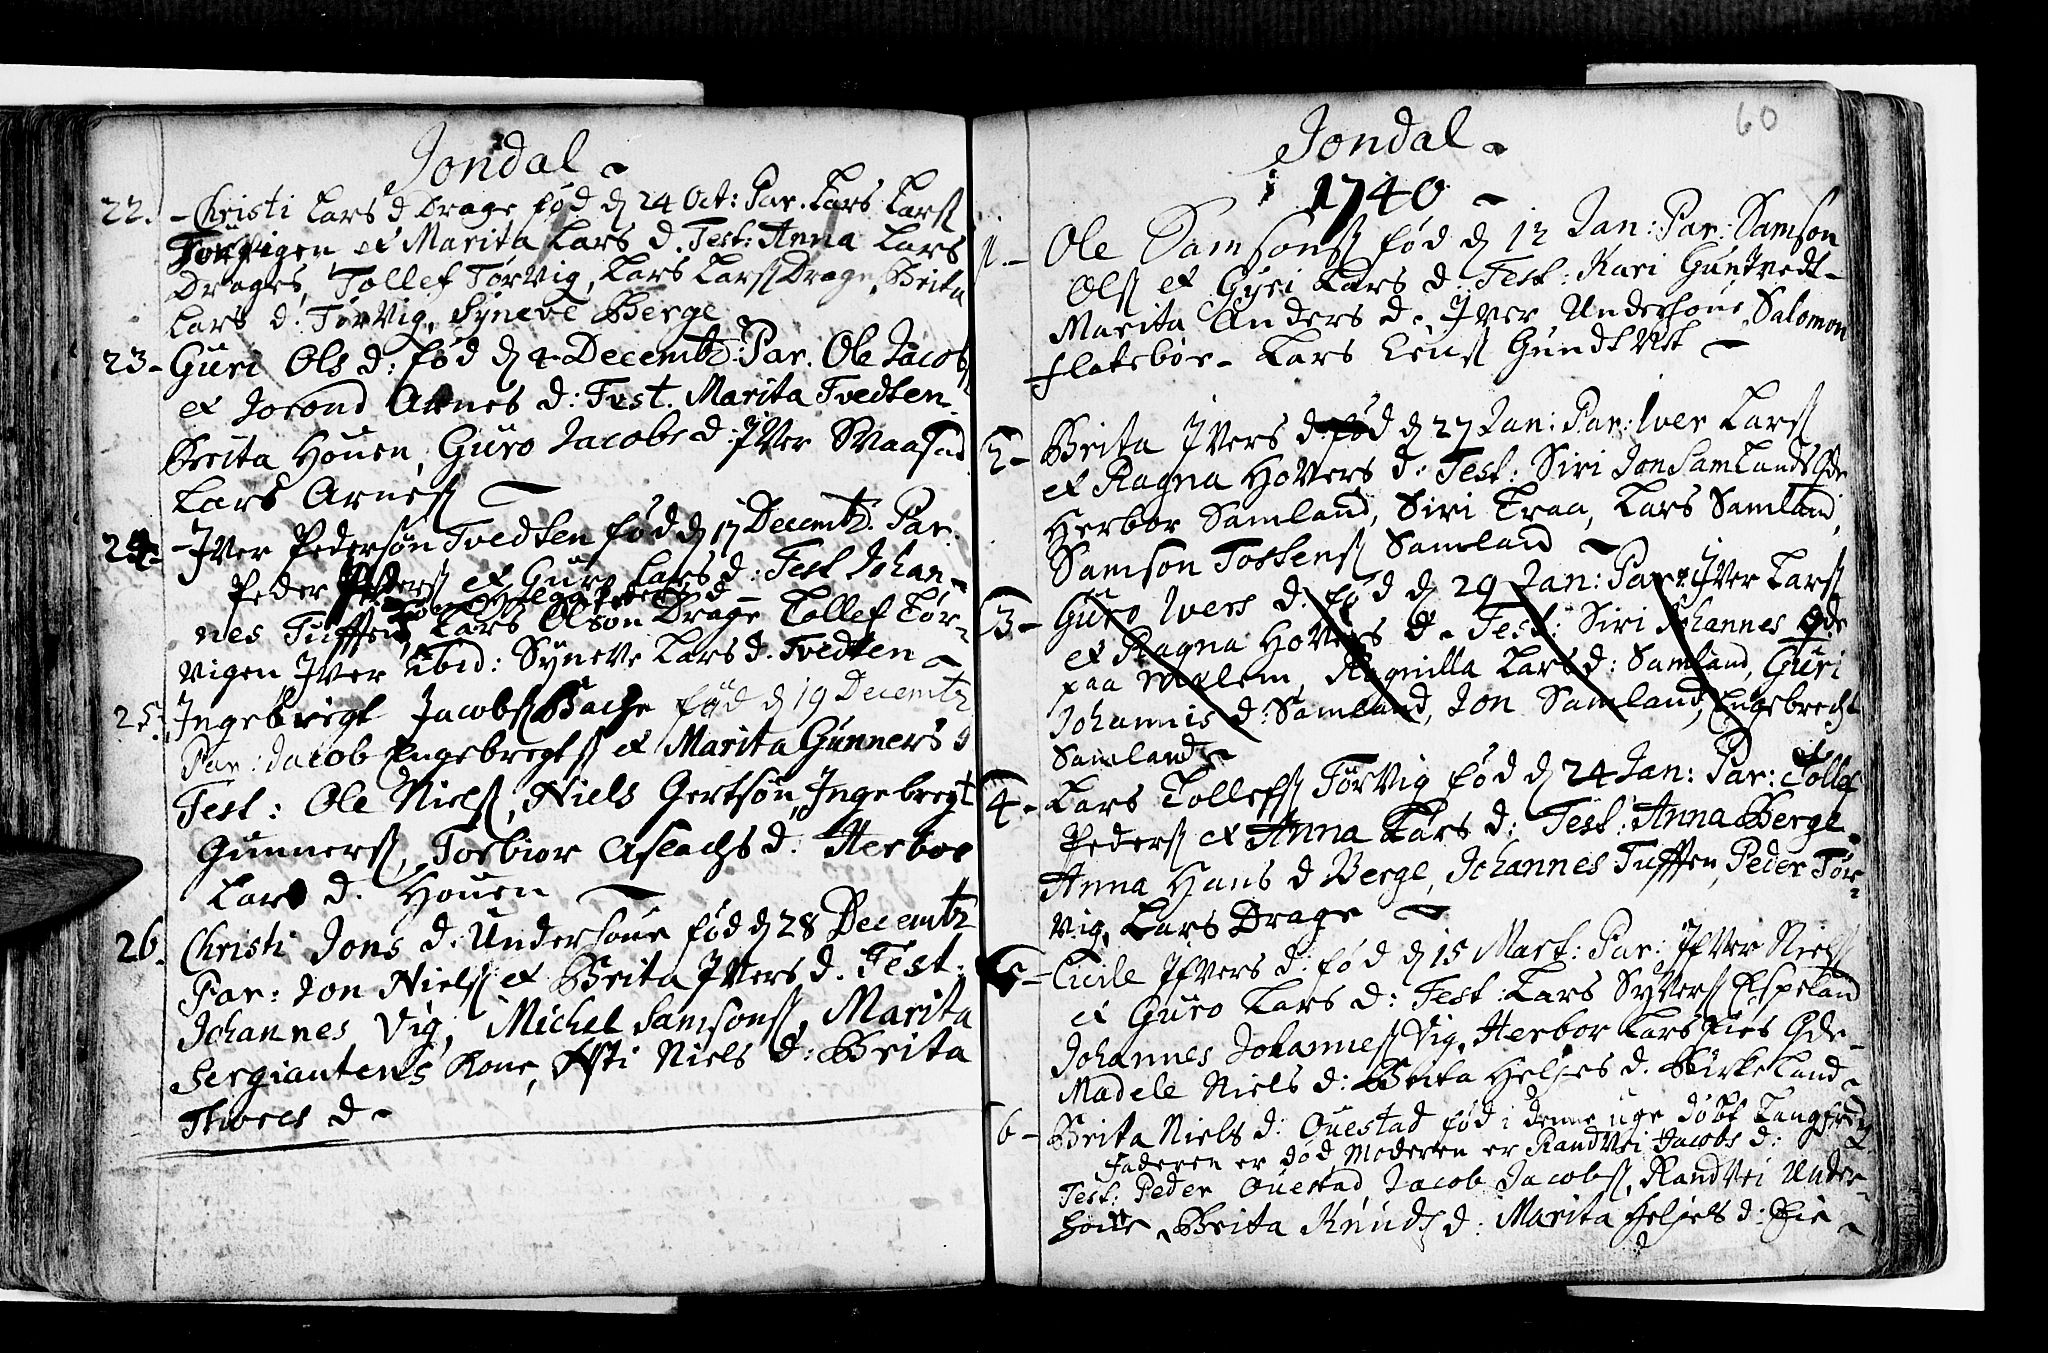 Jondal
22. Christi Lars d Drage fød d 24 Oct: Par. Lars Lars
Tørvigen et Marita Lars d. Test: Anna Lars
Drages, Tollef Tørvig, Lars Lars Drage, Brita
Lars d. Tørvig, Syneve Berge
23 - Guri Ols d: fød d 4 Decembr: Par. Ole Jacobs
et Joron Arnes d: Test. Marita Tvedten
Brita Houen, Guro Jacobs d: Iver Svaasad
Lars Arnes
24 - Iver Pedersøn Tvedten fød d 17 Decembr. Par.
Peder Peders et Guro Lars d: Test Johan-
nes Tuffien, Lars Olson Drage Tollef Tør-
vigen Iver Ibid: Syneve Lars d. Tvedten
25. Ingebrigt Jacobs Bache fød d 19 Decembr
Par: Jacob Engebregts et Marita Gunners d
Test: Ole Niels, Niels Gertsøn, Ingebregt
Gunners, Torbior Aslachs d. Herbor
Lars d. Houen
26. Christi Jons d: Undersoue fød d 28 Decembr
Par: Jon Niels et Brita Ivers d. Test.
Johannes Vig, Michel Samsons, Marita
Sergiantens Kone, Niels d: Brita
Thores d
60
Jondal
1740
1. - Ole Samsons fød d 12 Jan: Par: Samson
Ols et Gyri Lars d. Test: Kari Guntvedt
Marita Anders d. Iver Undersoue, Salomon
Flatebøe - Lars Lens
2 - Brita Ivers d. fød d 27 Jan: Par: Iver Lars
et Ragna Hovers d: Test: Siri Jon Samlands Qde
Herbor Samland, Siri Traa, Lars Samland,
Samson Tostens Samland
3 - Guro Ivers d. fød d 29 Jan: Par: Iver Lars
et Ragna Hovers d. Test: Siri Johannes Qde
paa Malem, Ragnilla Lars d: Samland, Guri
Johannis d: Samland, Jon Samland, Engebrecht
Samland
4 - Lars Tollefs Tørvig fød d 24 Jan: Par: Tollef
Peders et Anna Lars d: Test: Anna Berge
Anna Hans d Berge, Johannes Tuffien, Peder Tør-
vig, Lars Drage
5 - Cicile Ifvers d: fød d 15 Mart: Par: Ifver Niels
et Guro Lars d: Test: Lars Syvers Espeland
Johannes Johannes Vig, Herbor Lars Qde
Madele Niels d: Brita Heljes d. Birkeland
6 - Brita Niels d: Ouestad fød i denne uge døbt Langfred
Faderen er død Moderen er Randvei Jacobs d:
Test: Peder Ouestad, Jacob Jacobs, Randvei Under-
soue, Brita Knuds d: Marita Heljes d: Eie